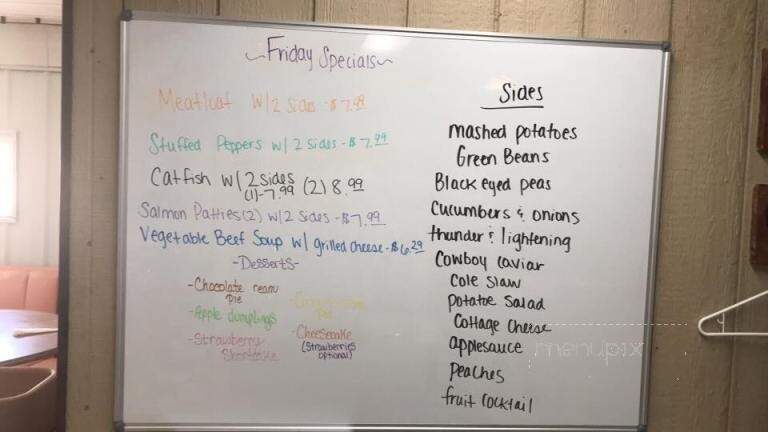 ~Friday Specials~
Meatloaf w/ 2 sides - $7.99
Stuffed Peppers w/ 2 sides - $7.99
Catfish w/ 2 sides
(1)-7.99 (2) 8.99
Salmon Patties(2) w/ 2 sides - $7.99
Vegetable Beef Soup w/ grilled cheese - $6.29
-Desserts-
-Chocolate ream
pie
-Apple dumplings
-Strawberry
Shortcake
pie
-Cheesecake
(Strawberries
optional)
Sides
mashed potatoes
Green Beans
Black eyed peas
Cucumbers & onions
thunder & lightening
Cowboy caviar
Cole slaw
Potatoe Salad
Cottage Cheese
applesauce
Peaches
fruit Cocktail
menupix